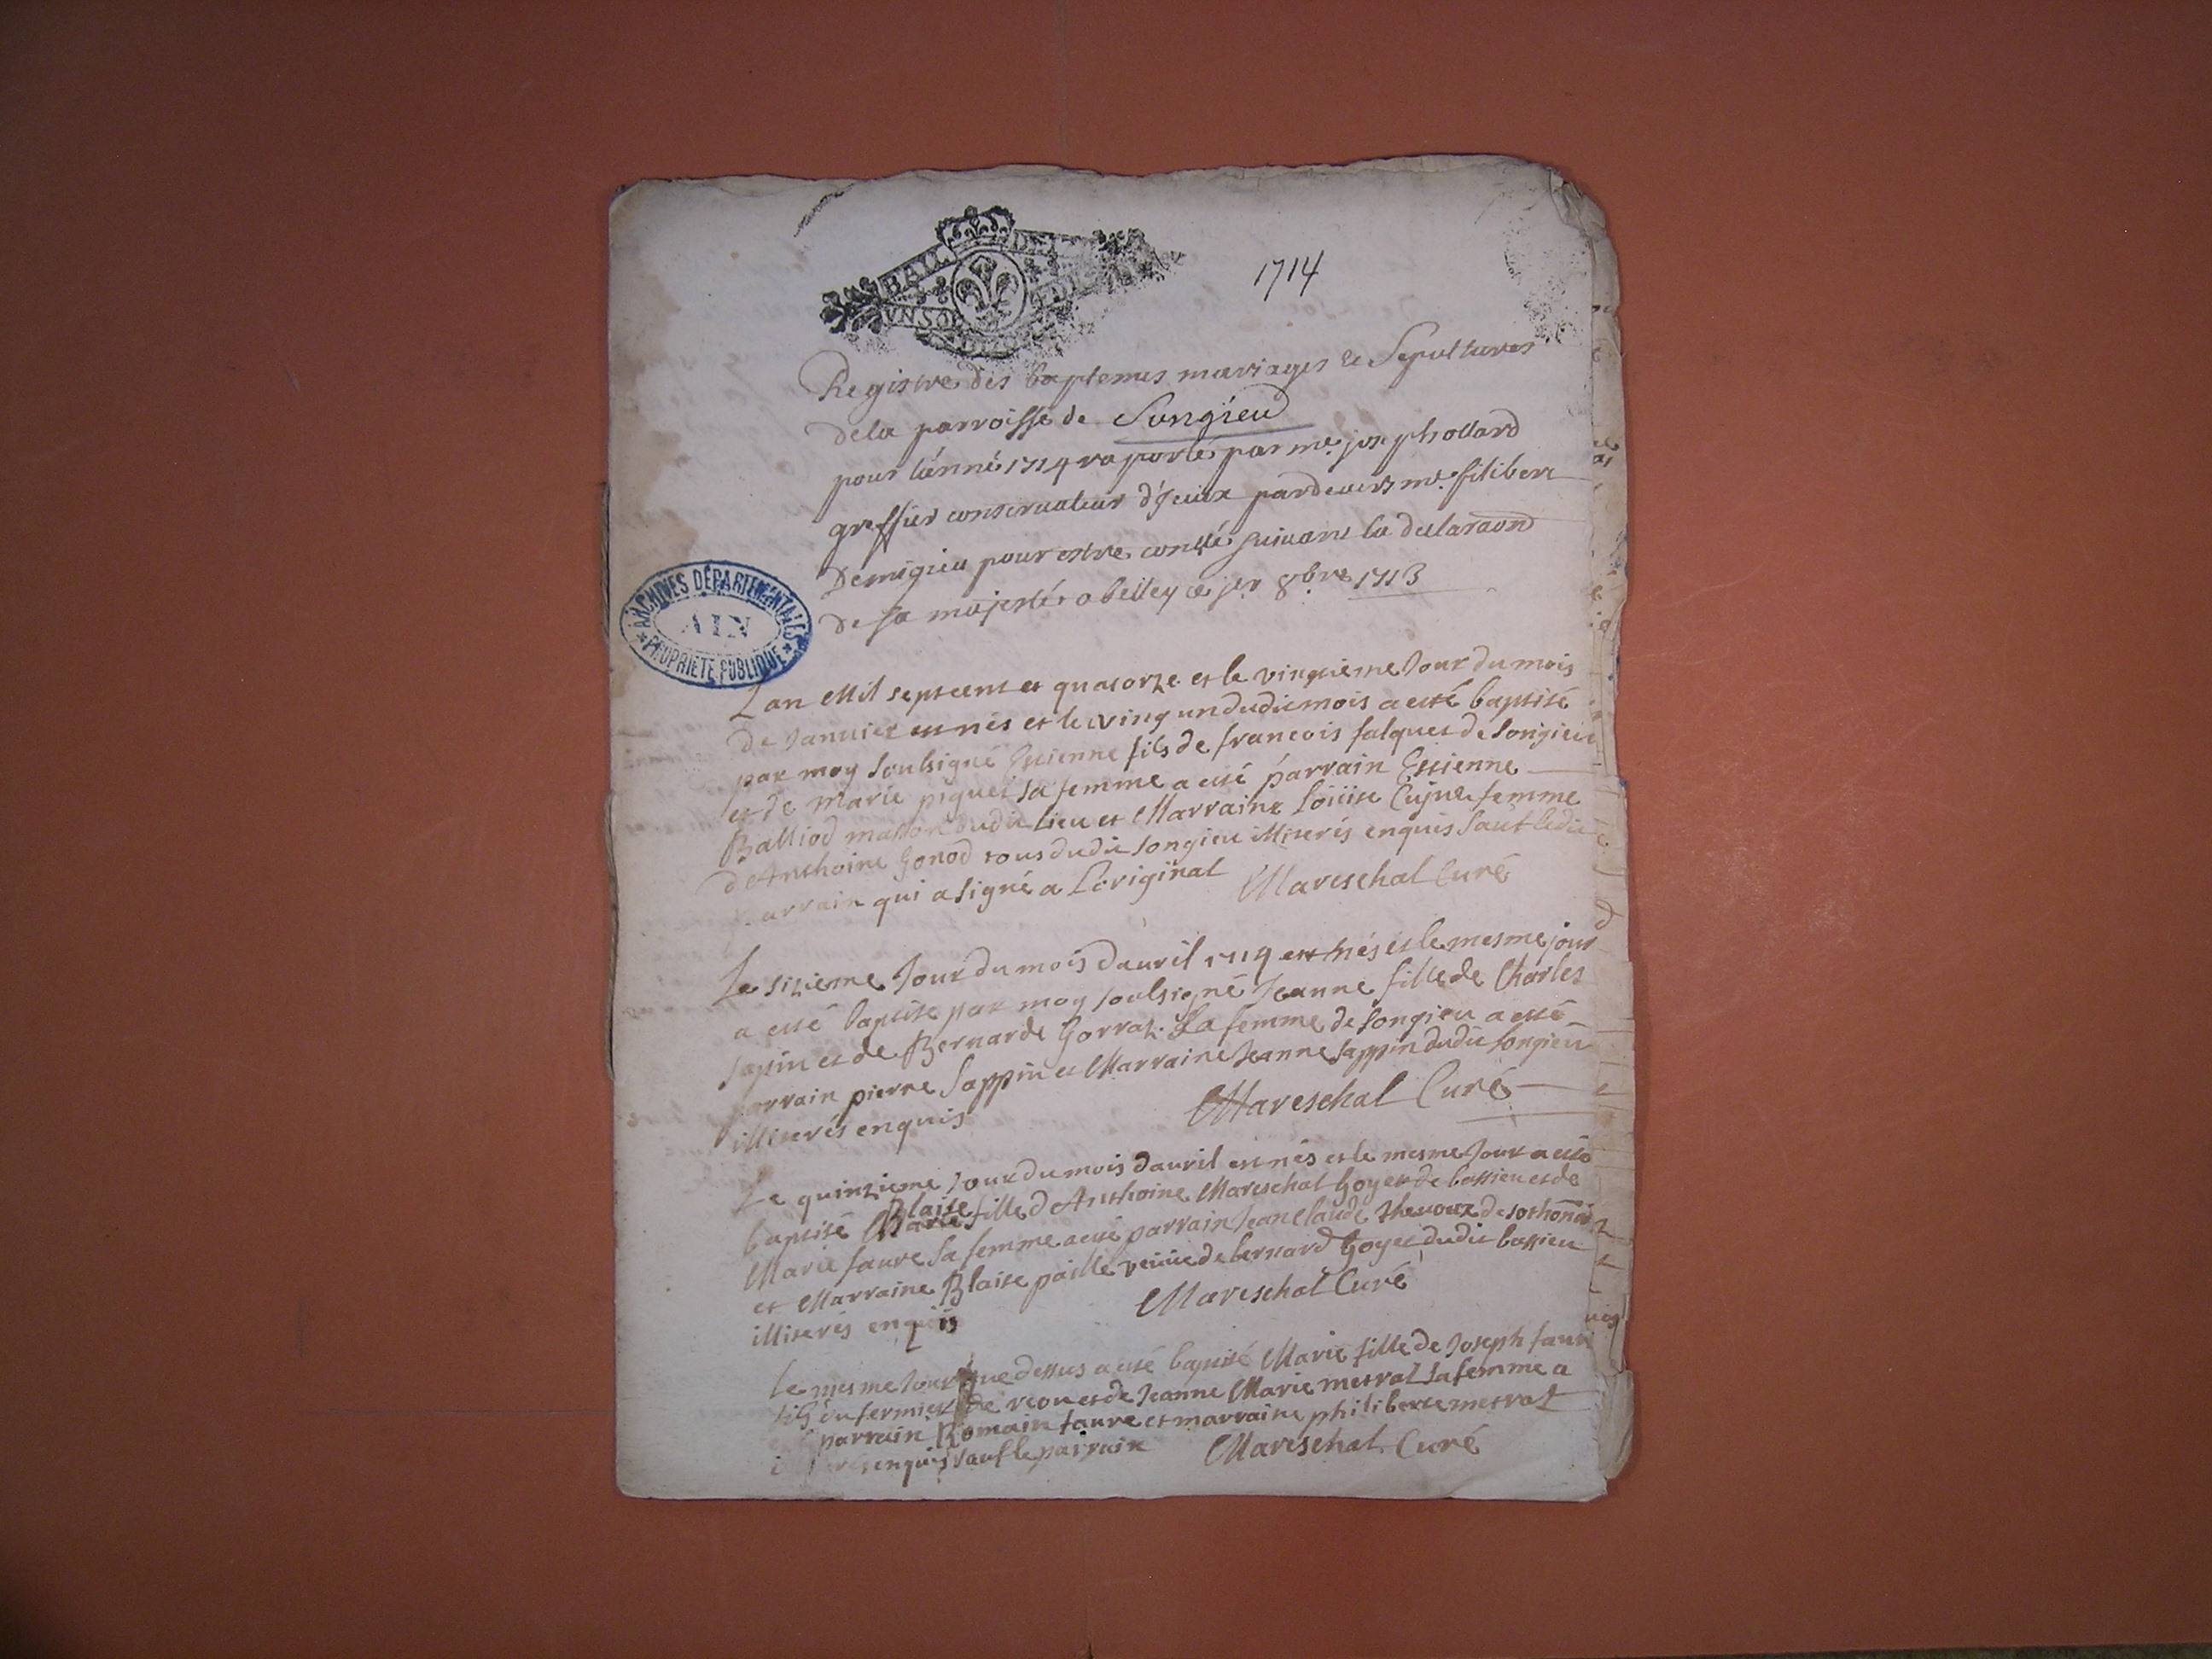 1714
Registre des baptemes mariages et Sepultures
dela parroisse de Songieu
pour lánné 1714 raporté par me. joseph ollard
greffier conservateur d'Iceux pardevers me. filibert
Demigieu pour estre contté suivant la declaraon
de sa majesté a belley ce jer 8bre 1713
ARCHIVES DÉPARTEMENTALES
AIN
PROPRIÉTÉ PUBLIQUE
Lan Mil septcent et quatorze et le vingtieme Jour du mois
de Janvier est nés et le vingt un dudit mois a esté baptisé
par moy soubsigné Estienne fils de francois falquet de songieu
et de Marie piquet sa femme a esté parrain Estienne
Balliod masson dudit Lieu et Marraine Loüise Cujne femme
d'Anthoine Gonod tous dudit songieu illiterés enquis sauf ledit
parrain qui a signé a L'original Mareschal Curé
Le sizieme Jour du mois dauril 1714 est nés et le mesme jour
a esté baptisé par moy soubsigné Jeanne fille de Charles
sapin et de Bernarde Gorraz sa femme de songieu a esté
parrain pierre sappin et Marraine Jeanne sappin dudit songieu
illiterés enquis Mareschal Curé
Le quinzieme Jour du mois dauril est nés et le mesme Jour a esté
Blaise
baptisé Marie fille d'Anthoine Mareschal Goyet de bassieu et de
Marie faure sa femme a esté parrain Jean claude thevoux de sothonod
et Marraine Blaise paille veüüe de bernard Goyet dudit bassieu
illiterés enquis Mareschal Curé
Le mesme Jour que dessus a esté baptisé Marie fille de Joseph faure
fils du fermier de reou et de Jeanne Marie metral sa femme a
parrain Romain faure et marraine philiberte metral
enquis sauf le parrain Mareschal Curé